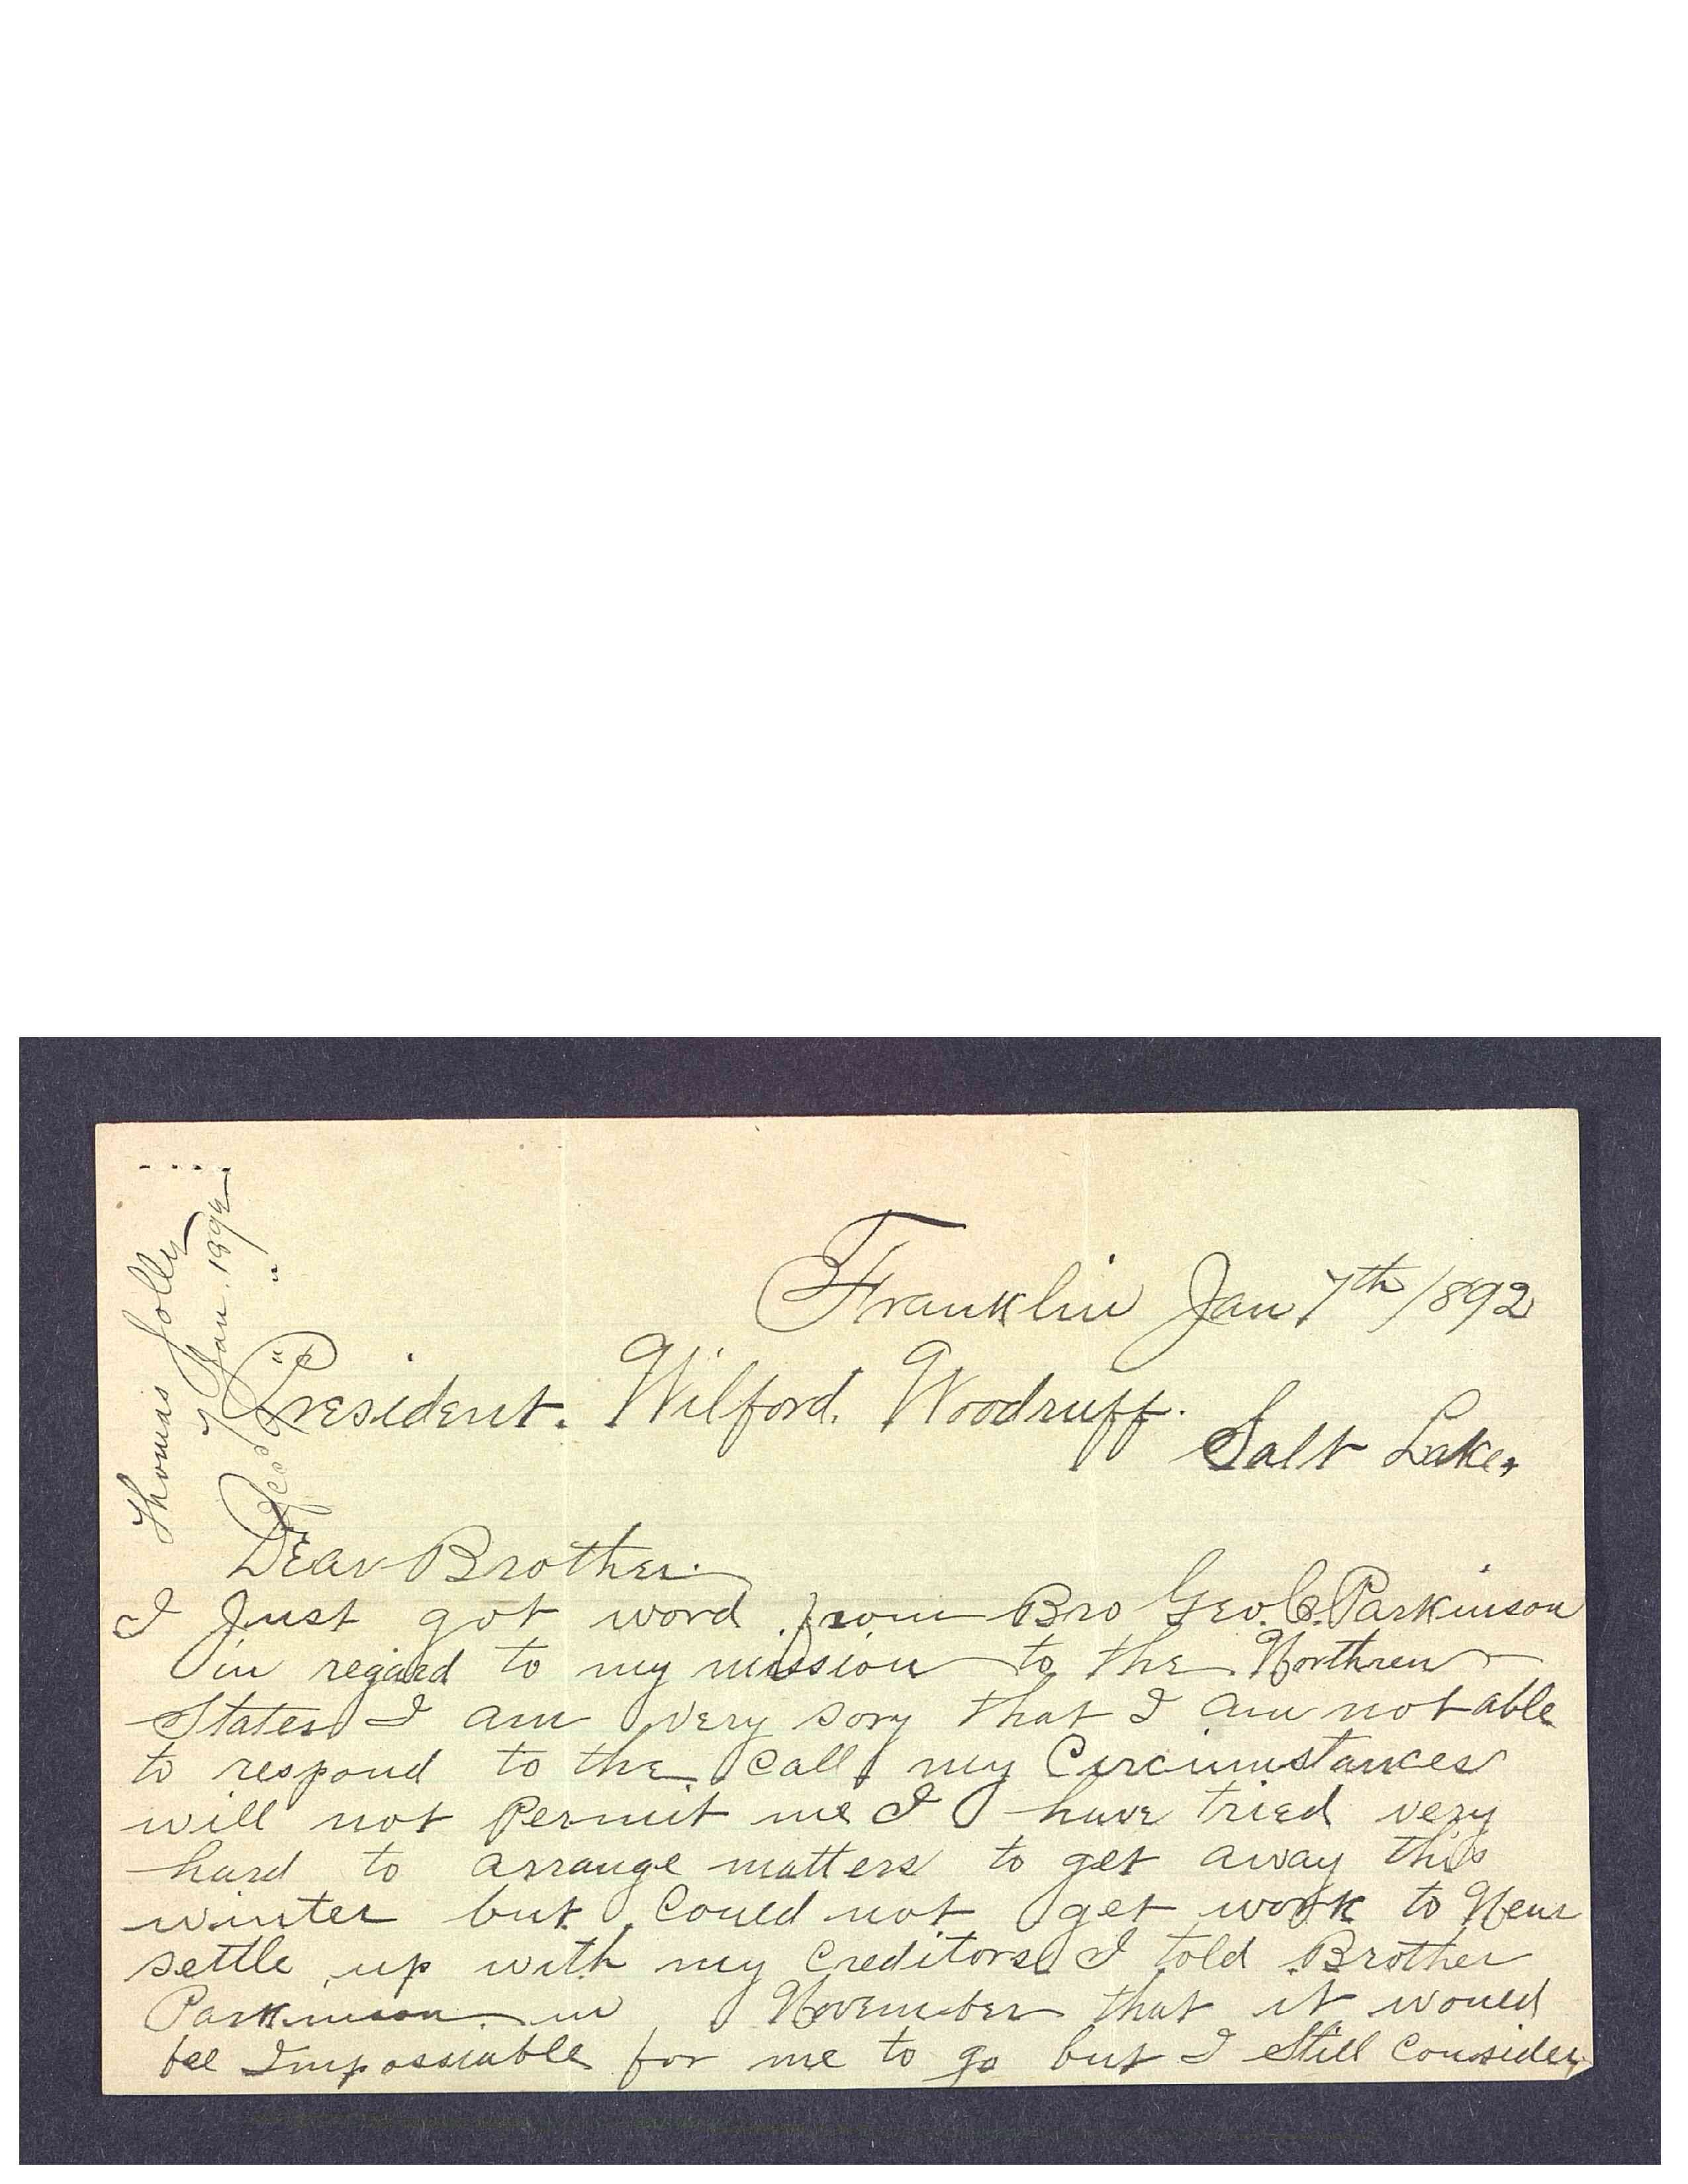 Franklin Jan 7th/1892
President. Wilford. Woodruff.
Salt Lake.
Dear Brother.
I Just got word from Bro Geo. C. Parkinson
in regard to my mission to the Northren
States I am very sory that I am not able
to respond to the call my Circumstances
will not Permit me I have tried very
hard to arrange matters to get away this
winter but could not get work to
settle up with my creditors I told Brother
Parkinson in November that it would
bee Impossiable for me to go but I Still Consider
Thomas Jolley
7 Jan. 1892
Recd " "